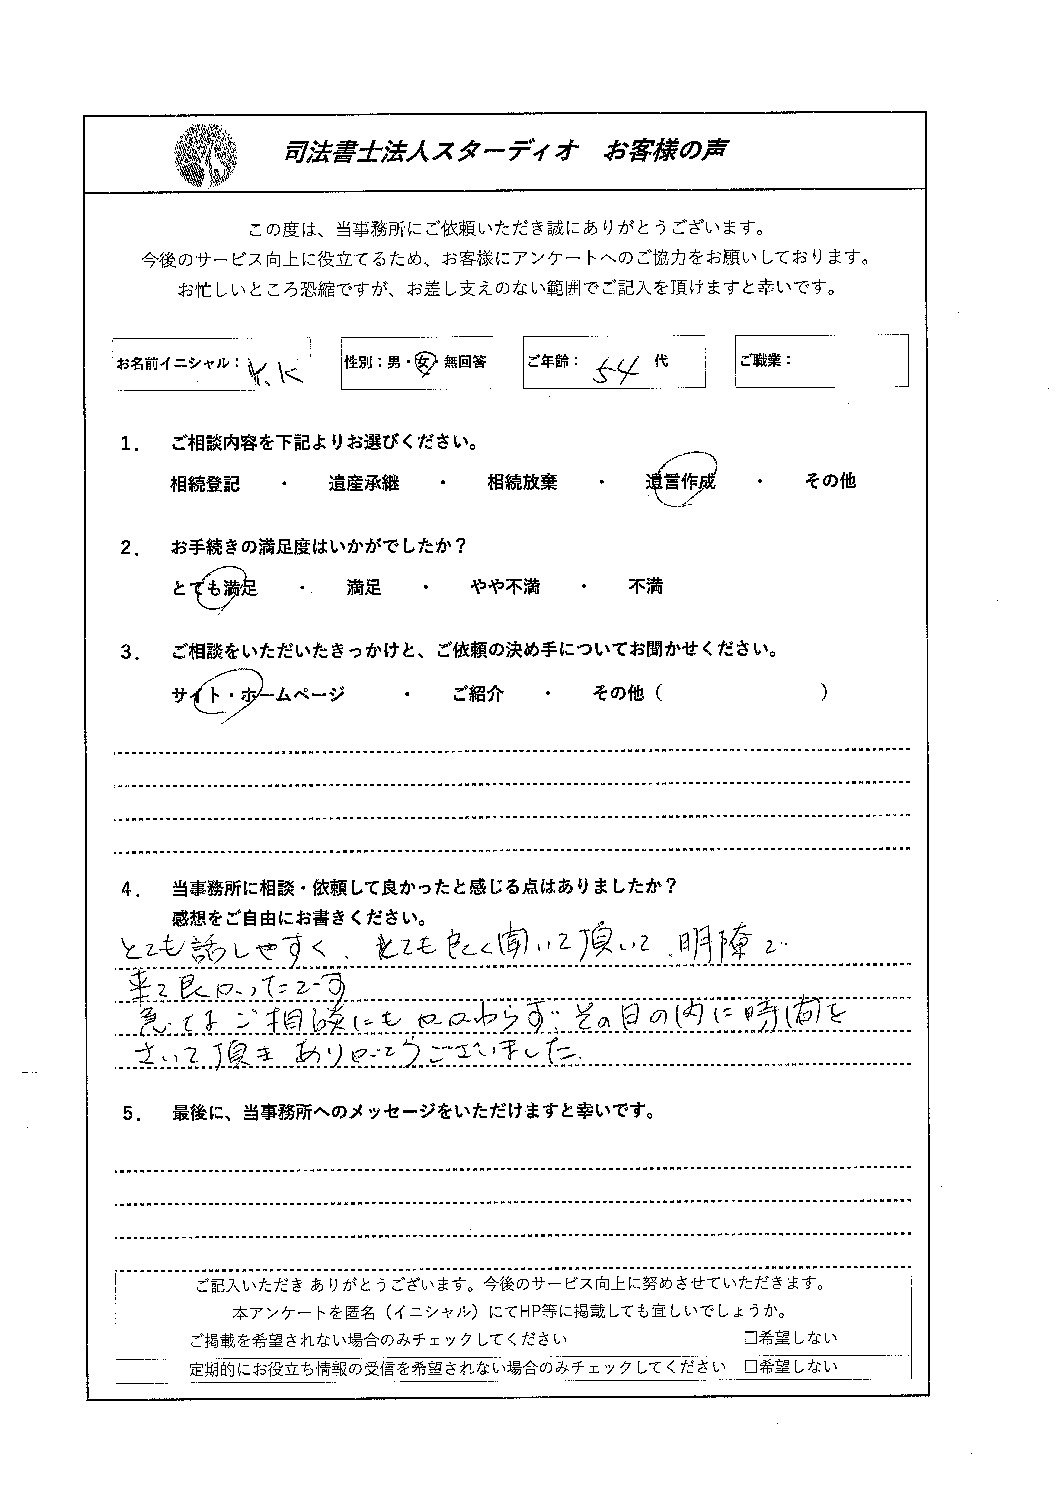 司法書士法人スターディオ　お客様の声
この度は、当事務所にご依頼いただき誠にありがとうございます。
今後のサービス向上に役立てるため、お客様にアンケートへのご協力をお願いしております。
お忙しいところ恐縮ですが、お差し支えのない範囲でご記入を頂けますと幸いです。
お名前イニシャル： Y.K　性別：男・女・無回答　ご年齢： 54 代　ご職業：
1． ご相談内容を下記よりお選びください。
相続登記　・　遺産承継　・　相続放棄　・　遺言作成　・　その他
2． お手続きの満足度はいかがでしたか？
とても満足　・　満足　・　やや不満　・　不満
3． ご相談をいただいたきっかけと、ご依頼の決め手についてお聞かせください。
サイト・ホームページ　・　ご紹介　・　その他（　　　　　　）
4． 当事務所に相談・依頼して良かったと感じる点はありましたか？
感想をご自由にお書きください。
とても話しやすく、とても良く聞いて頂いて、明瞭で
来て良かったです
急なご相談にもかかわらず、その日の内に時間を
さいて頂き ありがとうございました.
5． 最後に、当事務所へのメッセージをいただけますと幸いです。
ご記入いただき ありがとうございます。今後のサービス向上に努めさせていただきます。
本アンケートを匿名（イニシャル）にてHP等に掲載しても宜しいでしょうか。
ご掲載を希望されない場合のみチェックしてください　□希望しない
定期的にお役立ち情報の受信を希望されない場合のみチェックしてください　□希望しない